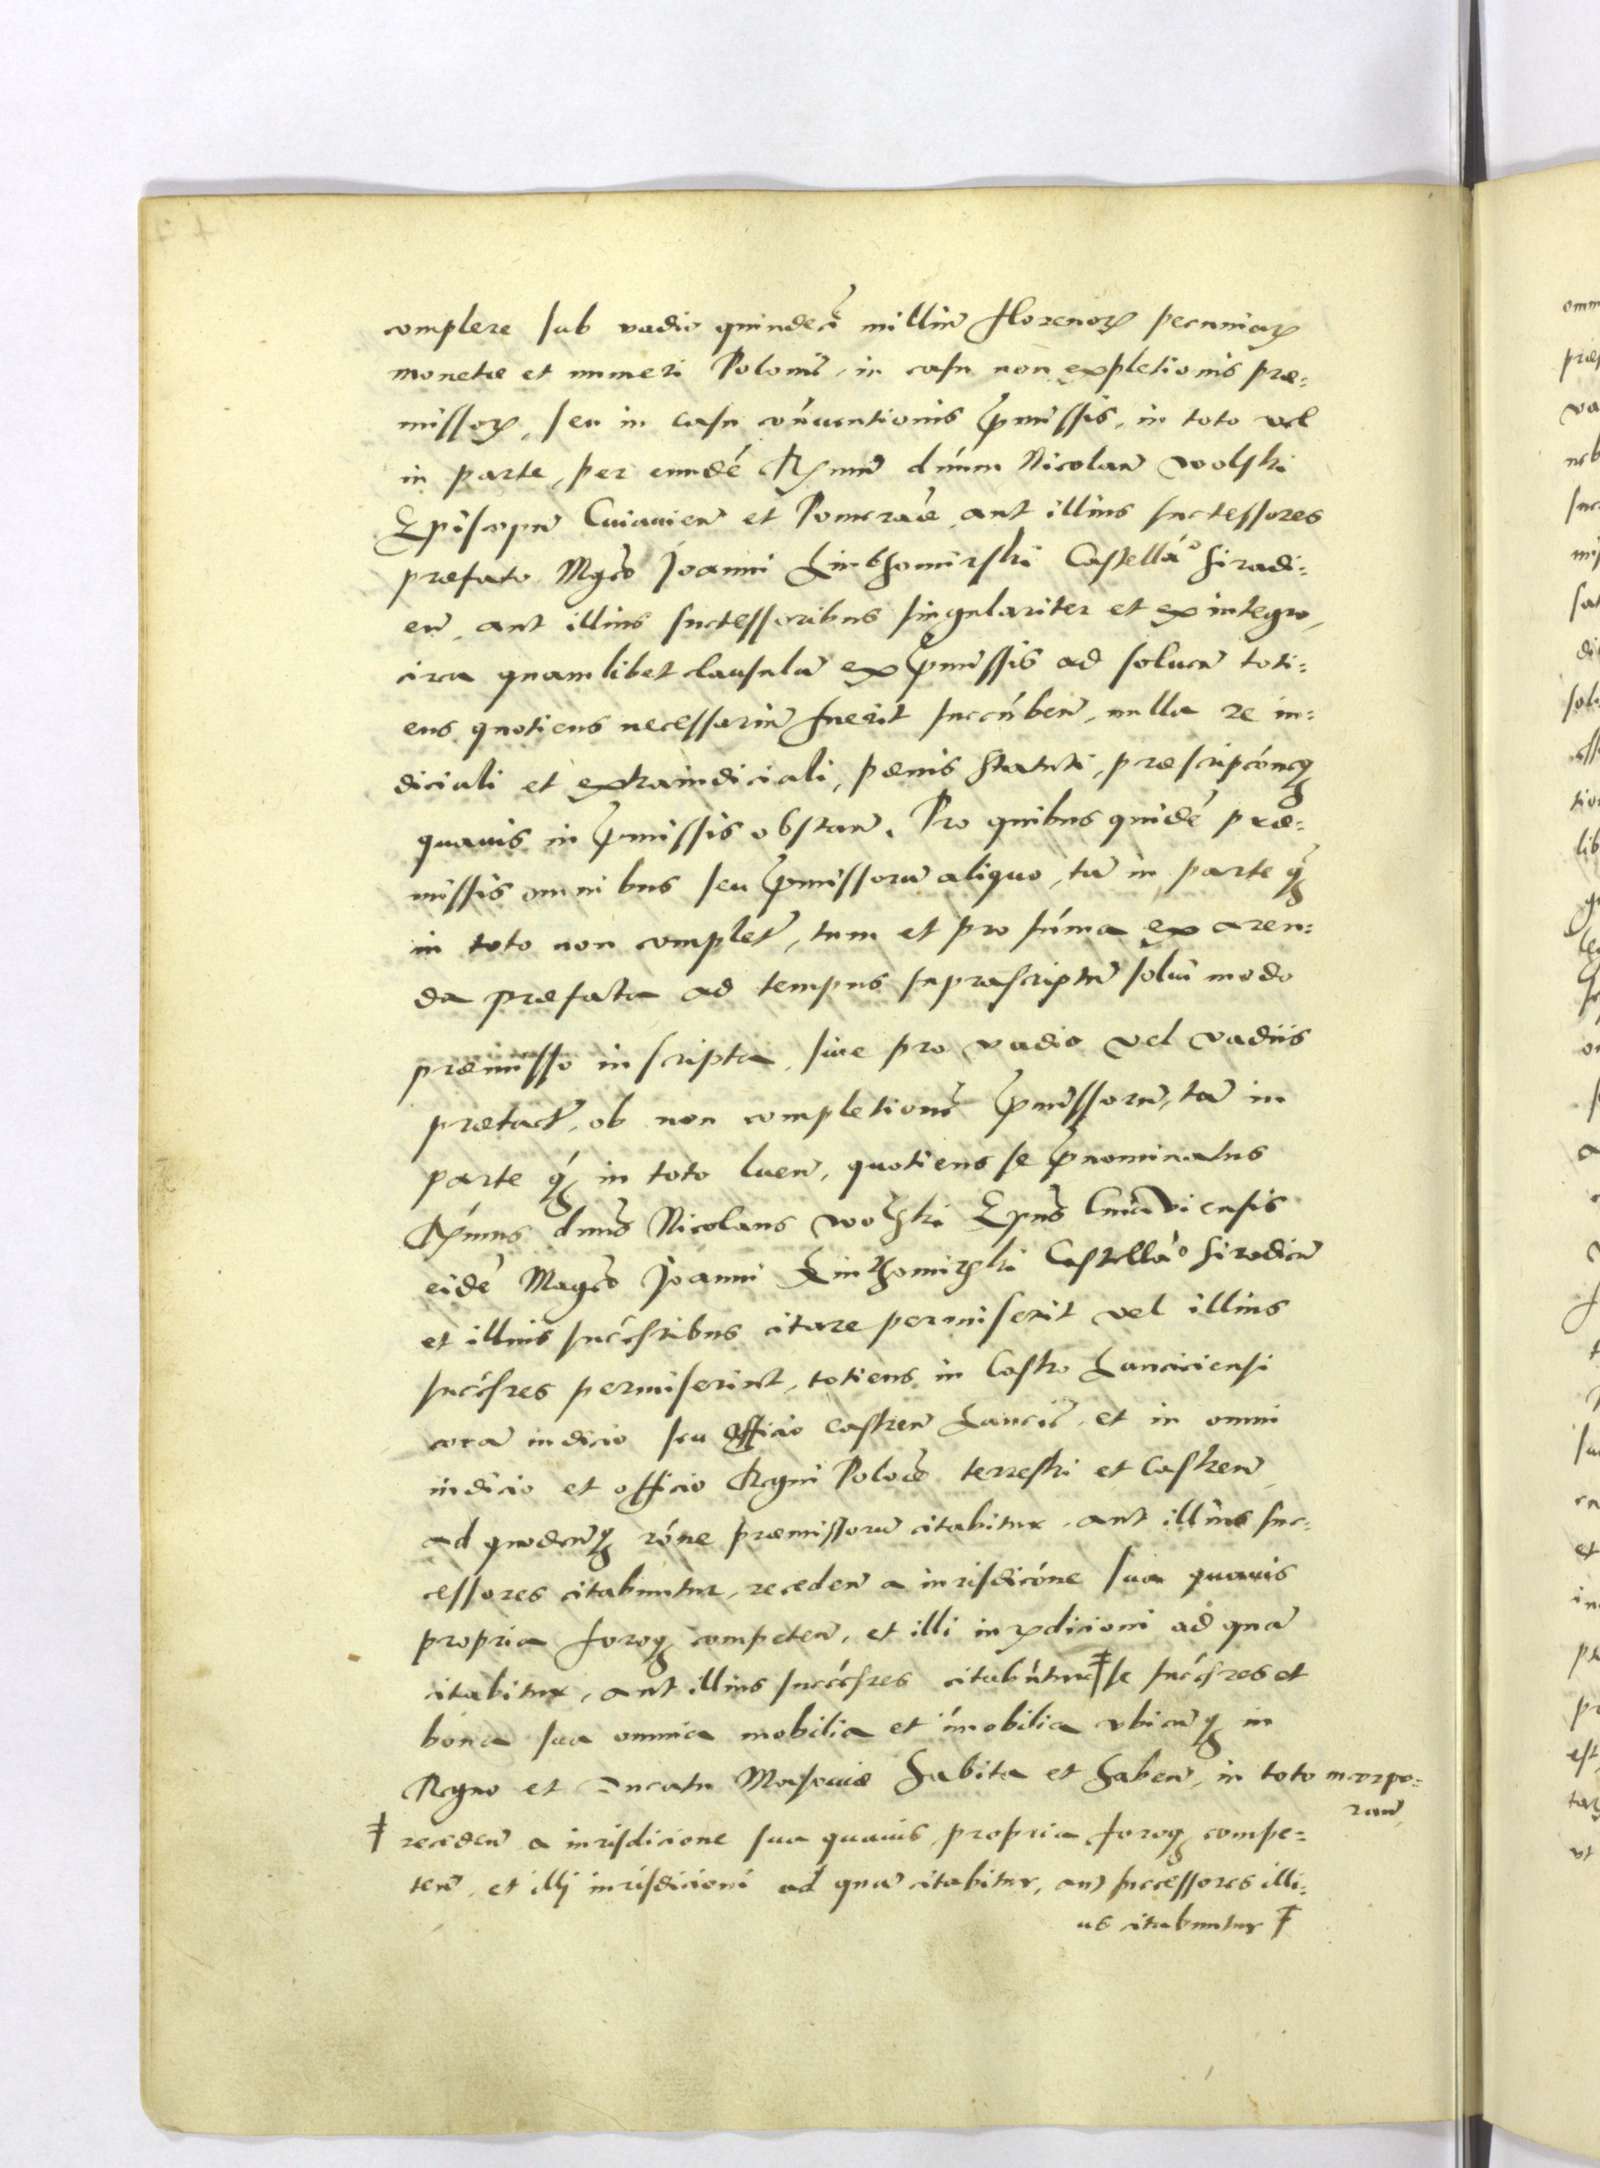 complere sub vadio quindecī milliū florenoꝝ pecuniaꝝ
monetæ et numeri Poloniē, in casu non expletionis præ=
missoꝝ, seu in casu cōntraventionis p̄missis, in toto vel
in parte, per eundē Rꝫmū dn̄um Nicolaū Wolski
Episcopū Cuiavien̄ et Pomeraē, aut illius successores
præfato Mgco Joanni Liutomirski Castellāo Siradi=
en̄, aut illius successoribus singulariter et ex integro,
circa quamlibet clausulā ex p̄missis ad soluen̄ toti=
ens quotiens necessariū fuerit succūben̄, nulla re iu=
diciali et extraiudiciali, pænis statuti, præscripcōneqꝫ
quavis in p̄missis obstan̄. Pro quibus quidē præ=
missis omnibus seu p̄missorū aliquo, tā in parte qꝫ
in toto non complet̄, tum et pro sūma ex aren=
da præfata ad tempus suprascriptū solui modo
præmisso inscripta, siue pro vadio vel vadiis
prætact̄, ob non completionē p̄missorū, tā in
parte qꝫ in toto luen̄, quotiens se p̄nominatus
Rꝫmus dn̄us Nicolaus Wolski Ep̄us Cuiaviensis
eidē Magco Joanni Liutomirski Castellāo Siradien̄
et illius succēsribus citare permiserit vel illius
succēsres permiserint, totiens in Castro Lanciciensi
corā iudicio seu officio Castren̄ Lancicī, et in omni
iudicio et officio Regni Poloē terrestri et Castren̄,
ad quodcunqꝫ rōne præmissorū citabitur, aut illius suc=
cessores citabuntur, receden̄ a iurisdicōne sua quavis
propria foroqꝫ competen̄, et illi iurꝫdicioni ad quā
citabitur, aut illius succēsres citabūtur ‡ se succēsres et
bona sua omnia mobilia et īmobilia ubicunqꝫ in
Regno et Ducatu Masoviæ habita et haben̄, in toto incorpo=
ran̄,
‡ receden̄ a iurisdicione sua quavis propria foroqꝫ compe=
ten̄, et illj iurisdicioni ad quā citabitur, aut successores illi=
us citabuntur ‡